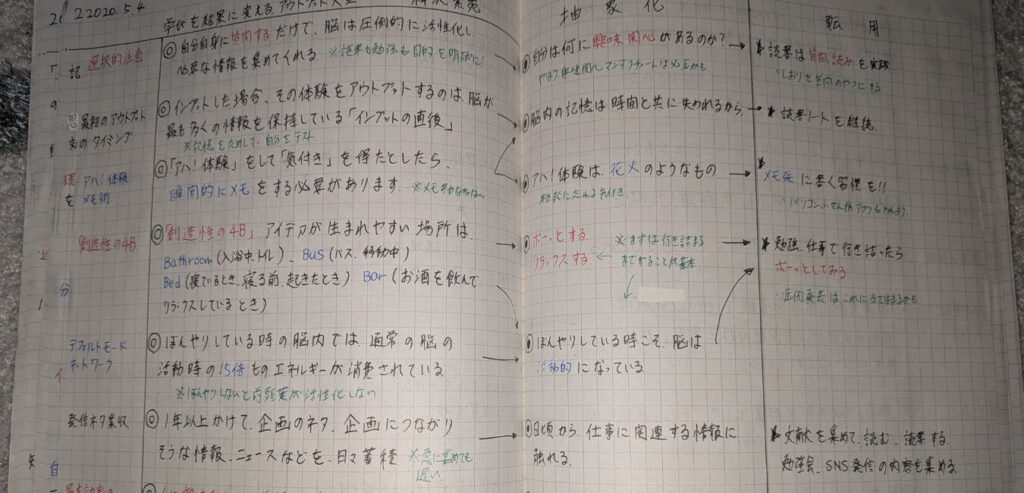 2020.5.4
学びを結果に変えるアウトプット大全
抽象化
転用
選択的注意
◎自分自身に質問するだけで、脳は圧倒的に活性化し、
必要な情報を集めてくれる。※読書も勉強も目的を明確に!
◎自分は何に興味関心があるのか?
★読書は目的読みを実践
しおりを目的のやつにする
最初のアウトプット
のタイミング
◎インプットした場合、その体験をアウトプットするのは、脳が
最も多くの情報を保持している「インプットの直後」
◎脳内の記憶は時間と共に失われるから、
★読書ノートを継続
アハ!体験
をメモ術
◎「アハ!体験」をして「気付き」を得たとしたら、
瞬間的にメモをする必要があります。
◎アハ!体験は花火のようなもの
メモ帳に書く習慣を!!
創造性の4B
◎「創造性の4B」アイデアが生まれやすい場所は、
Bathroom(入浴中、トイレ)、BUS(バス、移動中)
Bed(寝ているとき、寝る前、起きたとき) Bar(お酒を飲んで
リラックスしているとき)
◎ボーっとする
リラックスする
※まずは行き詰まる
までやることが基本
★勉強、仕事で行き詰ったら
ボーっとしてみる
症例発表はこれに当てはまるかも
デフォルトモード
ネットワーク
◎ぼんやりしている時の脳内では通常の脳の
活動時の15倍ものエネルギーが消費されている
※ぼんやりしないと前頭葉が活性化しない
◎ぼんやりしている時こそ、脳は
活動的になっている
発信ネタ集収
◎1年以上かけて、企画のネタ、企画につながり
そうな情報、ニュースなどを、日々蓄積
※急に集めても
遅い
◎日頃から、仕事に関連する情報に
触れる
★文献を集めて、読む、読書する
勉強会、SNS発信の内容を集める